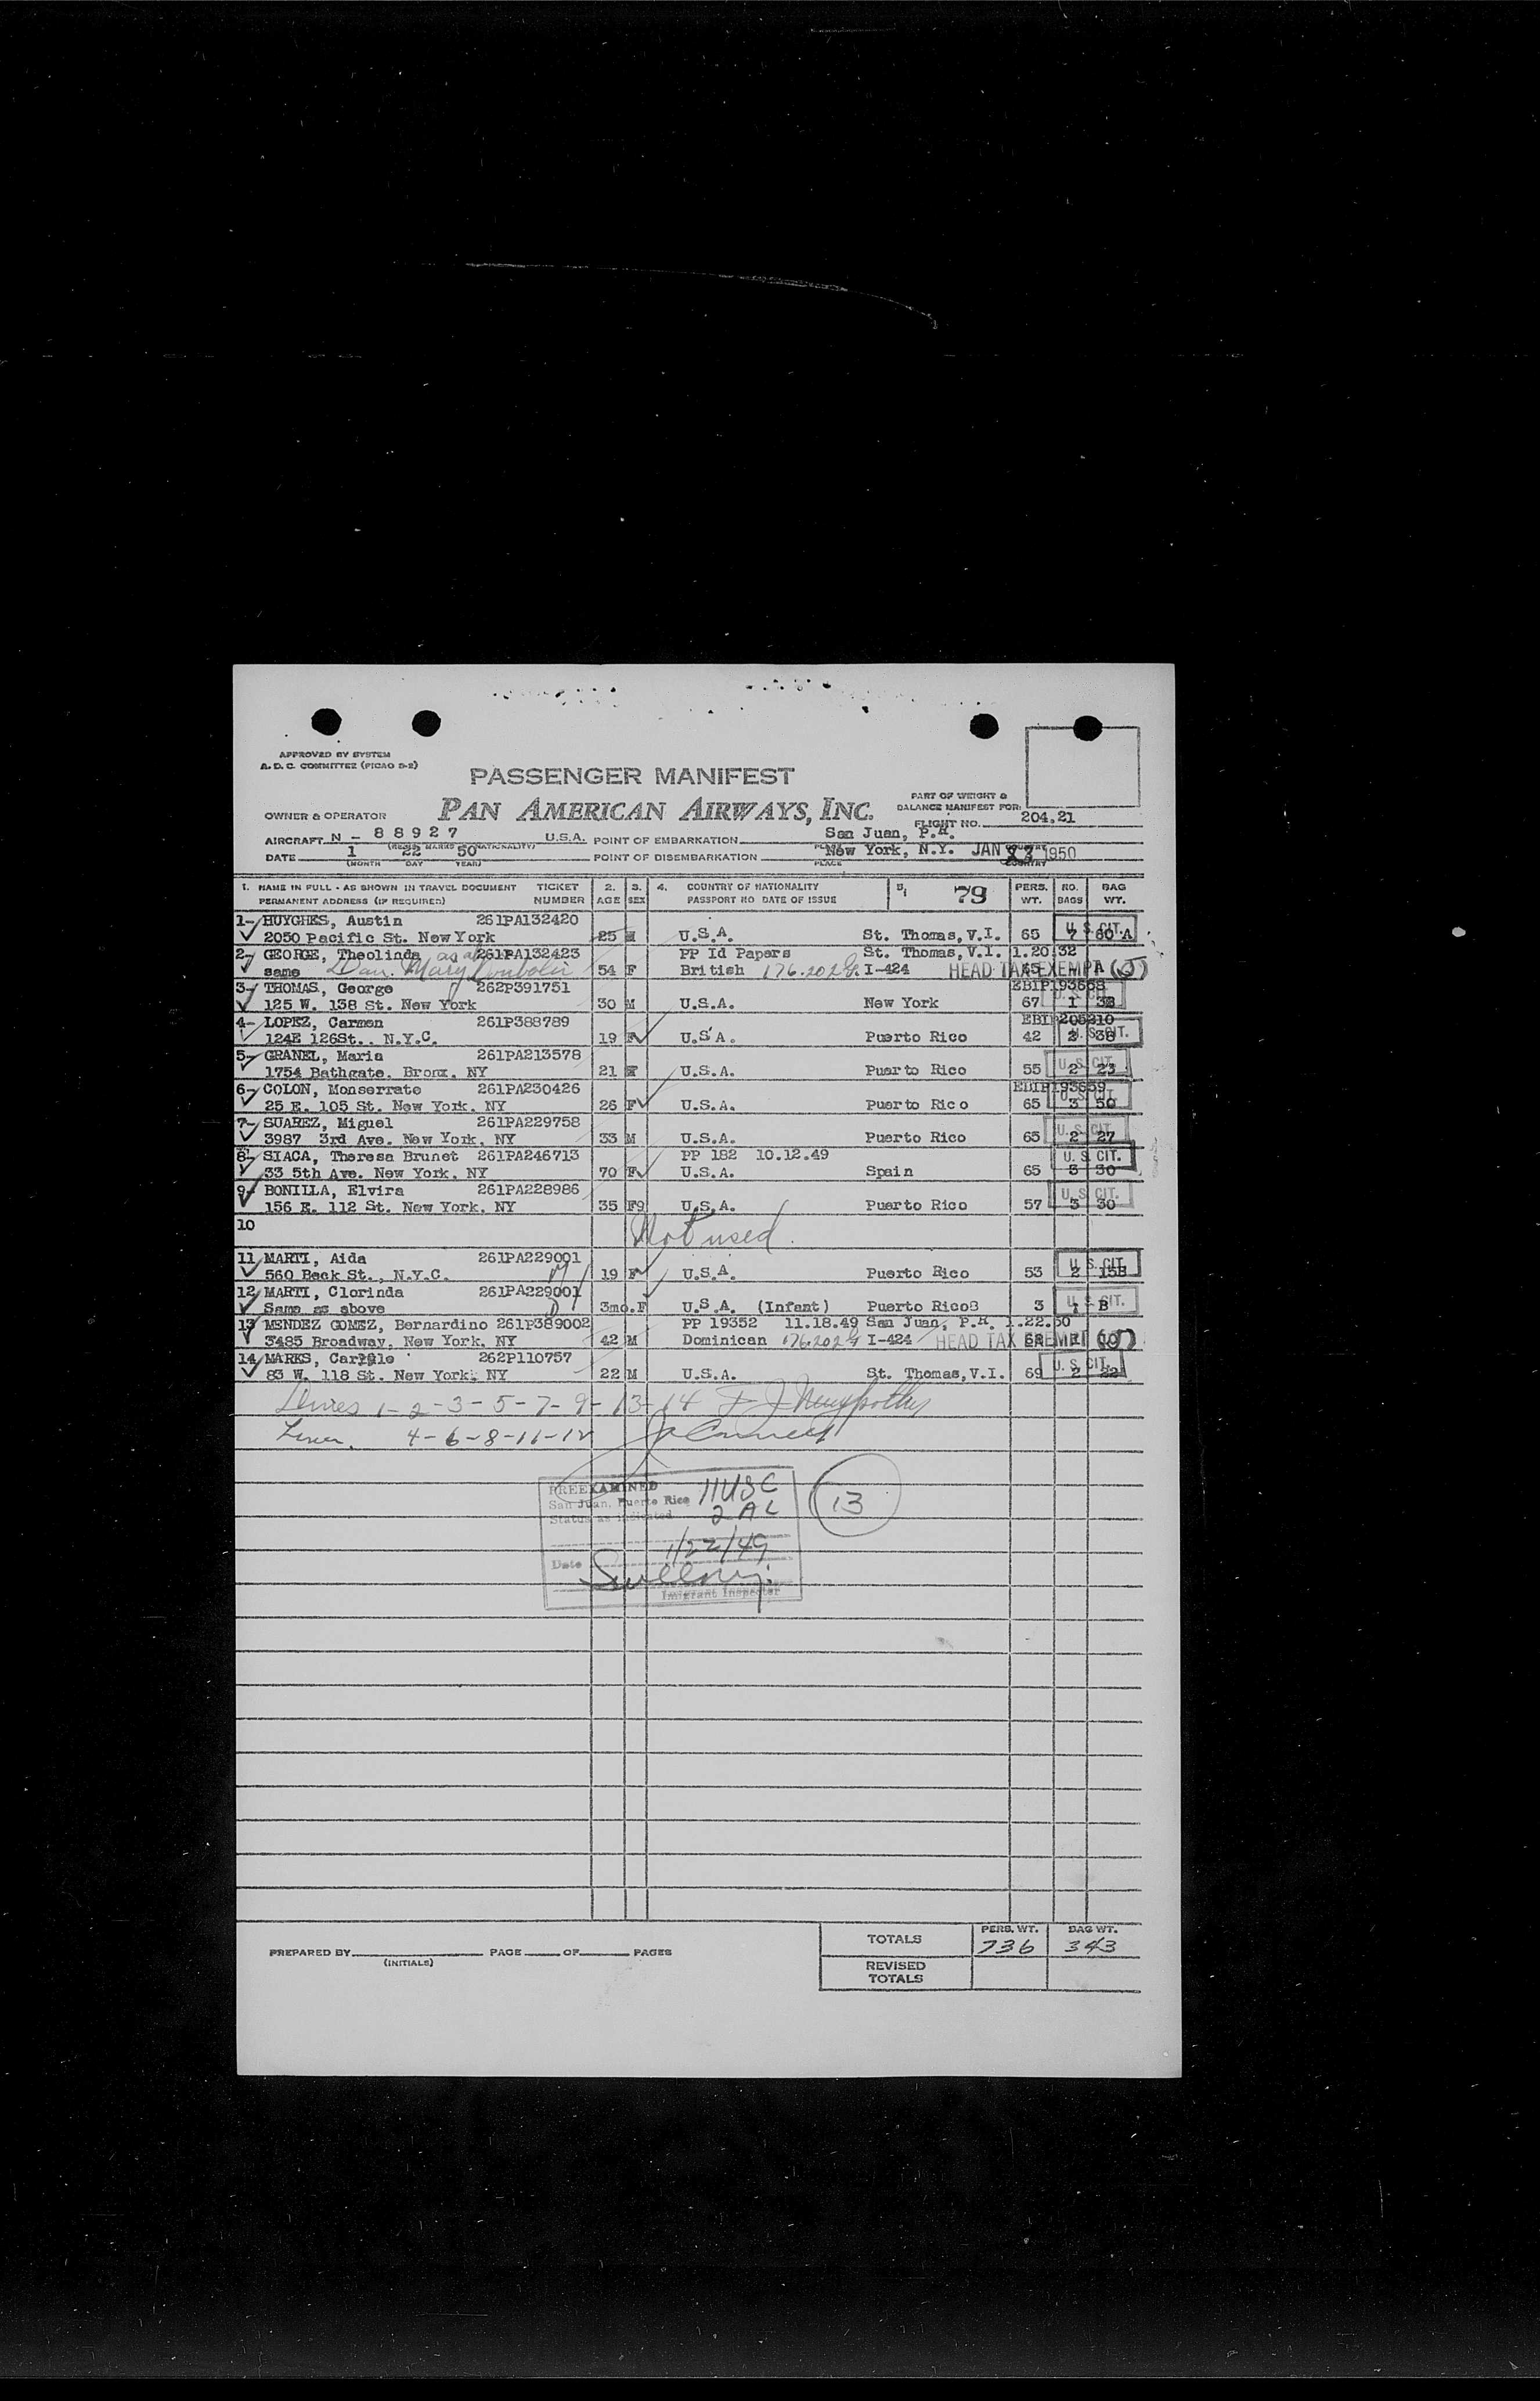 APPROVED BY SYSTEM
A. D. C. COMMITTEE (PICAO 5-2)
PASSENGER MANIFEST
PAN AMERICAN AIRWAYS, INC.
PART OF WEIGHT &
BALANCE MANIFEST FOR:
OWNER & OPERATOR
FLIGHT NO. 204.21
AIRCRAFT N - 88927 U.S.A. POINT OF EMBARKATION San Juan, P.R.
(REGIS. MARKS NATIONALITY) PLACE COUNTRY
DATE 1 22 50 POINT OF DISEMBARKATION New York, N.Y. JAN 1950
(MONTH DAY YEAR) PLACE COUNTRY
1. NAME IN FULL - AS SHOWN IN TRAVEL DOCUMENT TICKET 2. 3. 4. COUNTRY OF NATIONALITY 5. 79 PERS. NO. BAG
PERMANENT ADDRESS (IF REQUIRED) NUMBER AGE SEX PASSPORT NO DATE OF ISSUE WT. BAGS WT.
1- HUYGHES, Austin 261PA132420 U.S. CIT.
2050 Pacific St. New York 25 M U.S.A. St. Thomas, V.I. 65 7 80 A
2- GEORGE, Theolinda 261PA132423 PP Id Papers St. Thomas, V.I. 1.20.32
same Mary 54 F British 176.202 I-424 HEAD TAX EXEMPT A (J)
3- THOMAS, George 262P391751 EBIP193658 U.S. CIT.
125 W. 138 St. New York 30 M U.S.A. New York 67 1 38
4- LOPEZ, Carmen 261P388789 EBIP205210 U.S. CIT.
124E 126St.. N.Y.C. 19 F U.S.A. Puerto Rico 42 2 38
5- GRANEL, Maria 261PA213578 U.S. CIT.
1754 Bathgate. Bronx. NY 21 U.S.A. Puerto Rico 55 2 23
6- COLON, Monserrate 261PA230426 EBIP193659 U.S. CIT.
25 E. 105 St. New York. NY 26 F U.S.A. Puerto Rico 65 3 50
7- SUAREZ, Miguel 261PA229758 U.S. CIT.
3987 3rd Ave. New York. NY 33 M U.S.A. Puerto Rico 65 2 27
8- SIACA, Theresa Brunet 261PA246713 PP 182 10.12.49 U.S. CIT.
33 5th Ave. New York. NY 70 F U.S.A. Spain 65 3 30
9- BONILLA, Elvira 261PA228986 U.S. CIT.
156 E. 112 St. New York. NY 35 F9 U.S.A. Puerto Rico 57 3 30
10 Not used.
11 MARTI, Aida 261PA229001 U.S. CIT.
560 Beck St., N.Y.C. 19 F U.S.A. Puerto Rico 53 2 15B
12 MARTI, Clorinda 261PA229001 U.S. CIT.
Same as above 3mo. F U.S.A. (Infant) Puerto Rico8 3 1 B
13 MENDEZ GOMEZ, Bernardino 261P389002 PP 19352 11.18.49 San Juan, P.R. 1.22.50
3485 Broadway, New York. NY 42 M Dominican 176.202 I-424 HEAD TAX EXEMPT
14 MARKS, Carlyle 262P110757 U.S. CIT.
83 W. 118 St. New York. NY 22 M U.S.A. St. Thomas, V.I. 69 2 22
1-2-3-5-7-9-13-14
4-6-8-11-12
PREEXAMINED 11 USC
San Juan, Puerto Rico 2 AL
Status as indicated
13
1/22/49
Date
Imigrant Inspector
TOTALS PERS. WT. 736 BAG WT. 343
PREPARED BY PAGE OF PAGES
(INITIALS)
REVISED
TOTALS